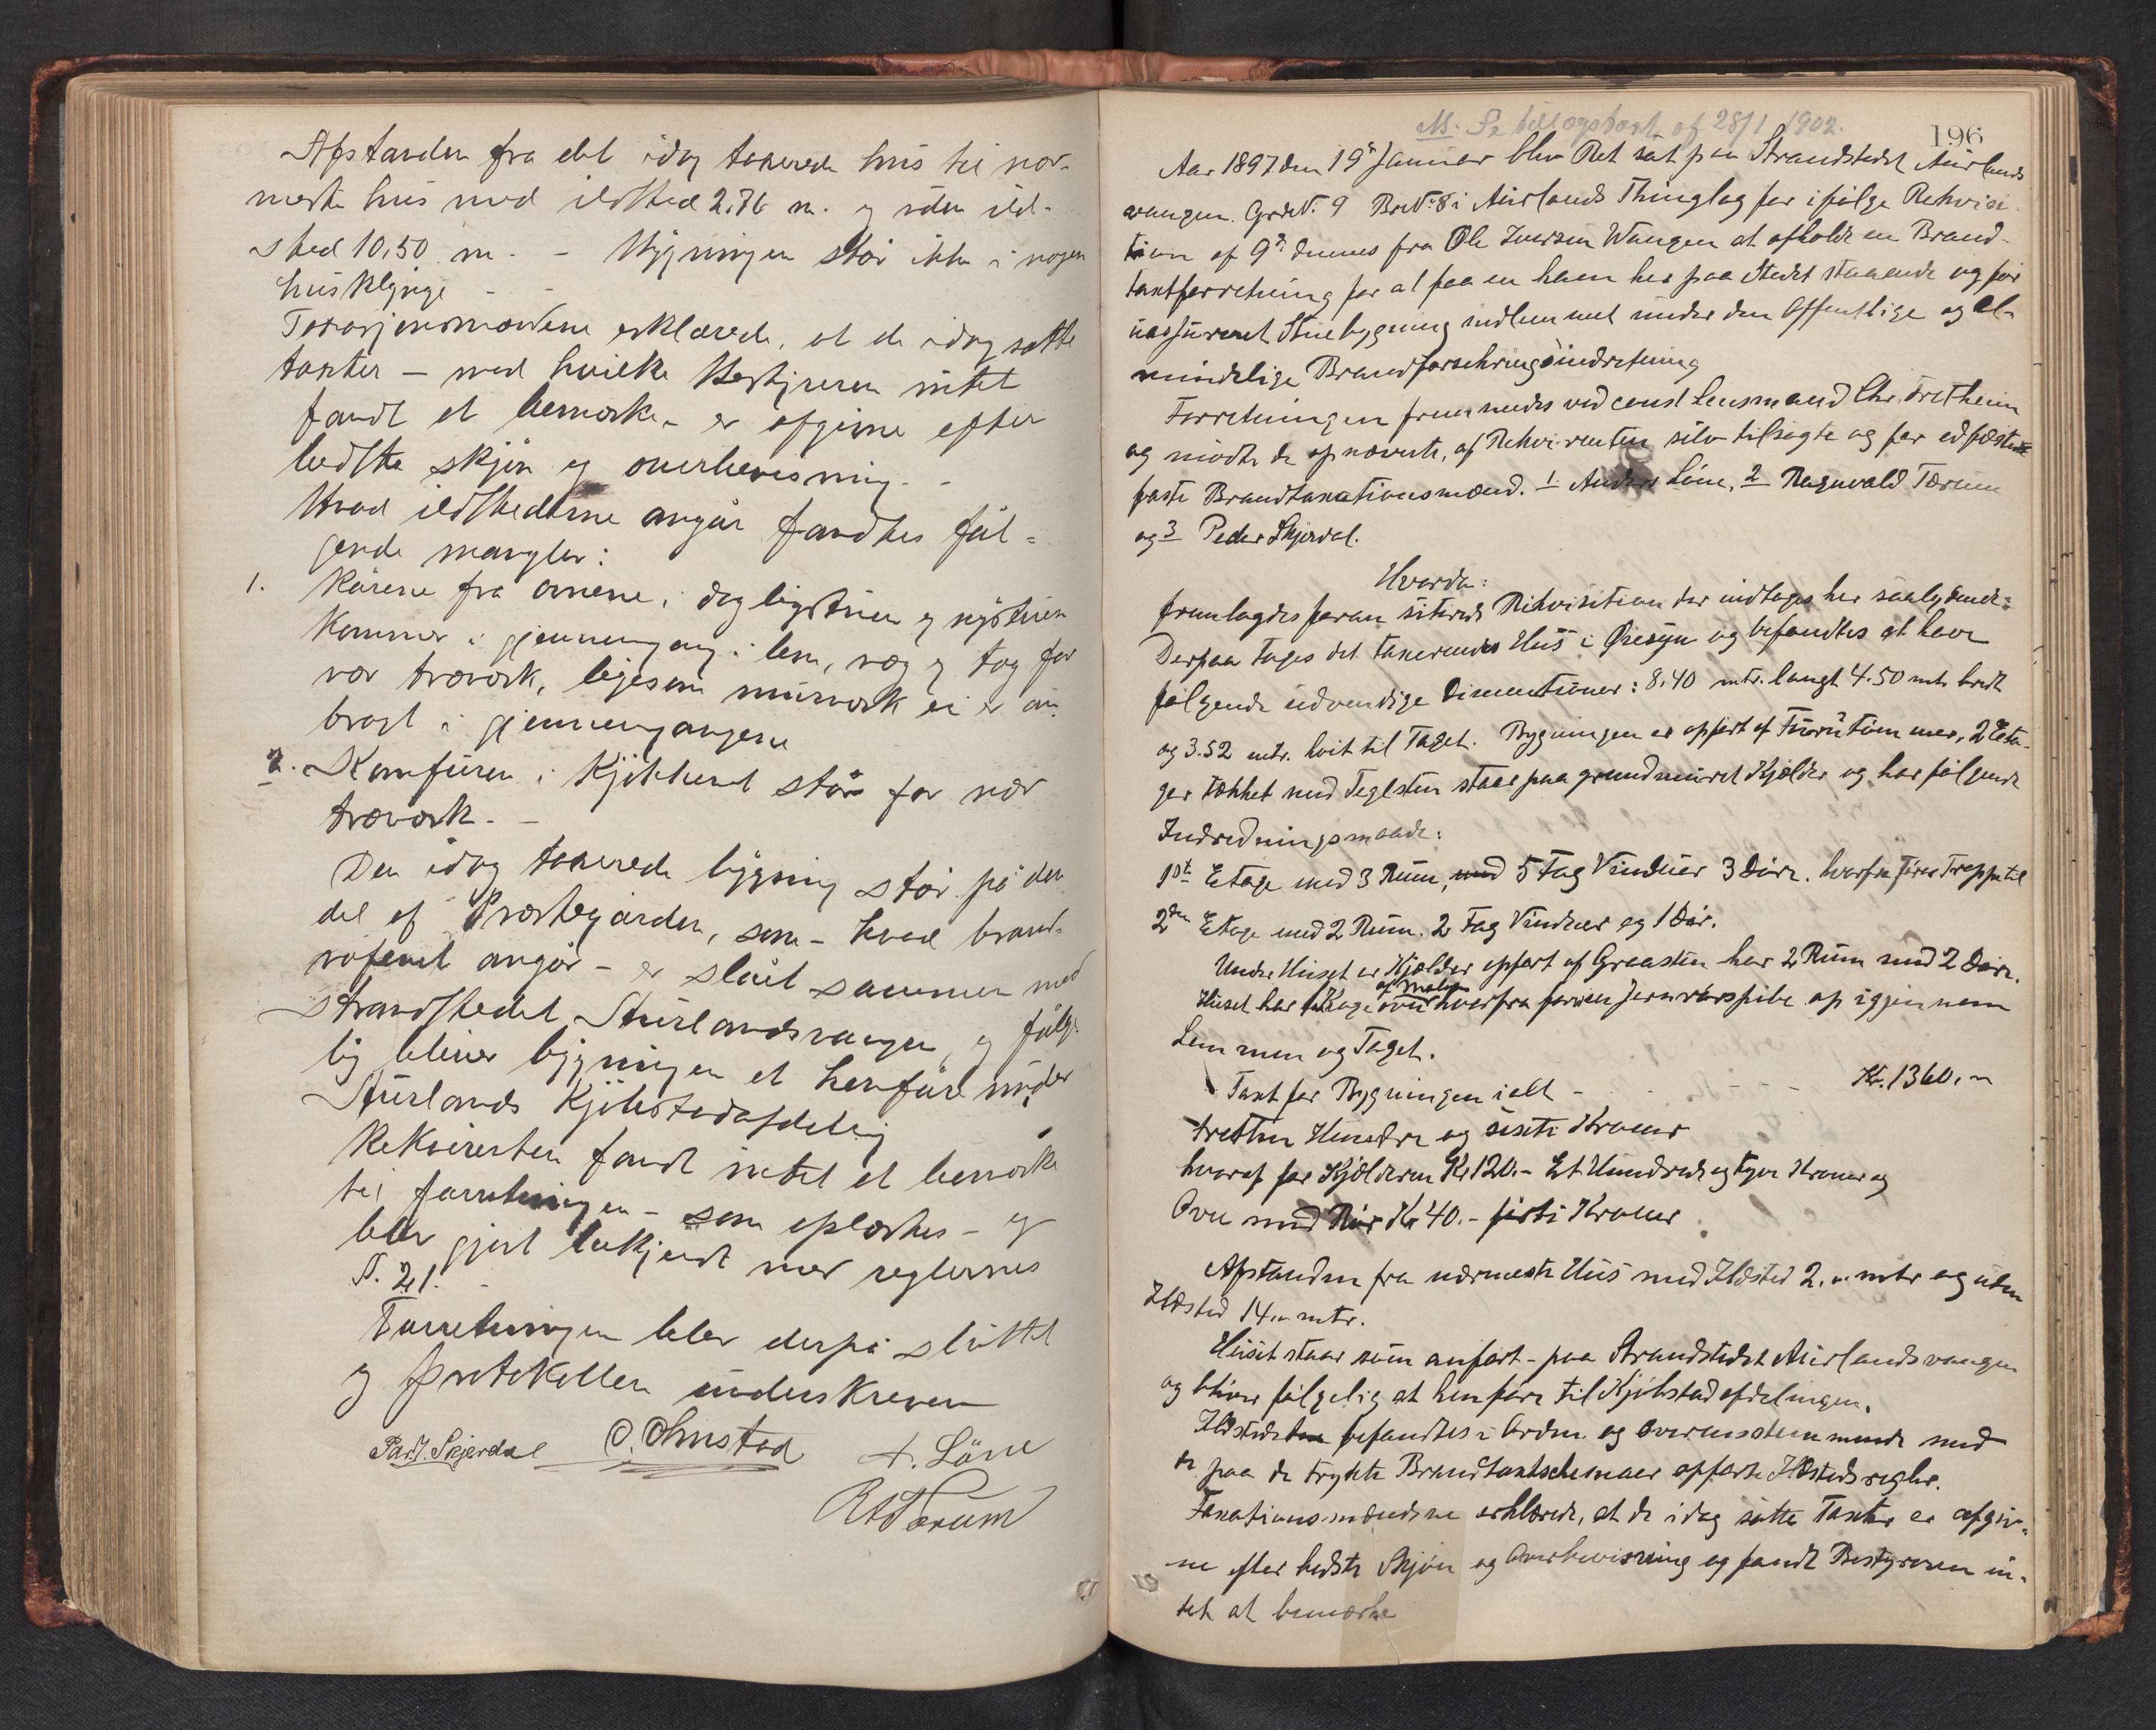 Afstanden fra det idag taxerede hus til nær-
meste hus med ildsted 2.76 m. og uden ild-
sted 10,50 m. - Bygningen står ikke i nogen
husklynge - -
Taxasjonsmændene erklærede, at de idag satte
taxter - med hvilke Bestyreren intet
fandt at bemærke - er afgivne efter
bedste skjøn og overbevisning. -
Hvad ildstederne angår fandtes føl-
gende mangler:
1. Rørene fra ovnene i dagligstuen og nystuen
kommer i gjennemgang i lem, væg og tag for
nær træværk, ligesom murværk ei er an-
bragt i gjennemgangene
2. Komfuren i Kjøkkenet står for nær
træværk. -
Den idag taxerede bygning står på den
del af Præstegården, som - hvad brand-
væsenet angår - er slået sammen med
strandstedet Aurlandsvangen, og følge-
lig bliver bygningen at henføre under
Aurlands Kjøbstadafdeling
Rekvirenten fandt intet at bemærke
til forretningen - som oplæstes - og
blev gjort bekjendt med reglernes
P. 21. -
Forretningen blev derpå sluttet
og protokollen underskreven
Ped. J. Skjerdal O. Olmstad A. Løne
R Tærum
M. Se tillægstaxt af 28/1 1902.
196
Aar 1897 den 19de Januar blev Ret sat paa Strandstedet Aurlands
vangen Grdn. 9 Brn. 8 i Aurlands Thinglag for ifølge Rekvisi-
tion af 9de dennes fra Ole Iversen Wangen at afholde en Brand-
taxtforretning for at faa en ham her paa Stedet staaende og før
uassureret Stuebygning indlemmet under den Offentlige og al-
mindelige Brandforsikringsindretning
Forretningen fremmedes ved const Lensmand Chr. Fretheim
og mødte de opnævnte, af Rekvirenten selv tilsagte og før edfæstede
faste Brandtaxationsmænd. 1 Anders Løne, 2 Ragnvald Tærum
og 3 Peder Skjerdal.
Hvorda:
fremlagdes foran siterede Rekvisition der indtages her saalydende:
Derpaa toges det taxerende Hus i Øiesyn og befandtes at have
følgende udvendige Dimentioner: 8.40 mtr. langt 4.50 mtr bredt
og 3.52 mtr. høit til Taget. Bygningen er opført af Furutømmer, 2 Eta-
ger tækket med Teglsten staar paa grundmuret Kjælder og har følgende
Indredningsmaade:
1ste Etage med 3 Rum, med 5 Fag Vinduer 3 Døre. hvorfra fører Trappe til
2den Etage med 2 Rum. 2 Fag Vinduer og 1 Dør.
Under Huset er Kjælder opført af Graasten har 2 Rum med 2 Døre.
Huset har 1 Kogeovn af Malm hvorfra fører Jernrørspibe op igjennem
Lemmen og Taget.
Taxt for Bygningen ialt - - - - Kr. 1360.-
tretten Hundre og seksti Kroner
hvoraf for Kjælderen Kr 120.- Et Hundrede og tyve Kroner og
Ovn med Rør Kr 40.- førti Kroner
Afstanden fra nærmeste Hus med Ildsted 2.- mtr og uden
Ildsted 14.- mtr.
Huset staar som anført - paa Strandstedet Aurlandsvangen
og bliver følgelig at henføre til Kjøbstadafdelingen.
Ildstedet befandtes i Orden og overensstemmende med
de paa de trykte Brandtaxtschemaer opførte Ildstedsregler.
Taxationsmændene erklærede, at de idag satte Taxter er afgiv-
ne efter bedste Skjøn og Overbevisning og fandt Bestyreren in-
tet at bemærke